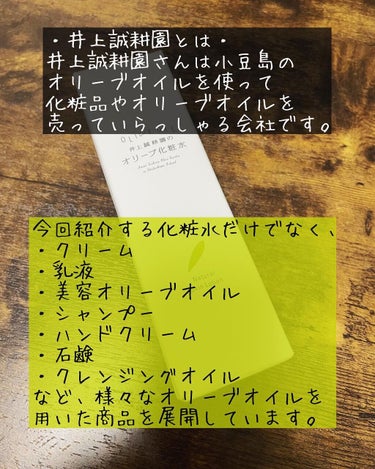 ・井上誠耕園とは・
井上誠耕園さんは小豆島の
オリーブオイルを使って
化粧品やオリーブオイルを
売っていらっしゃる会社です。
井上誠耕園の
オリーブ化粧水
今回紹介する化粧水だけでなく、
・クリーム
・乳液
・美容オリーブオイル
・シャンプー
・ハンドクリーム
・石鹸
・クレンジングオイル
など、様々なオリーブオイルを
用いた商品を展開しています。
Natural